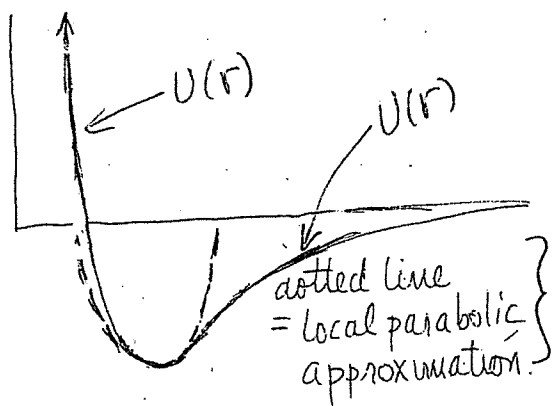 U(r)
U(r)
dotted line
= local parabolic
approximation.